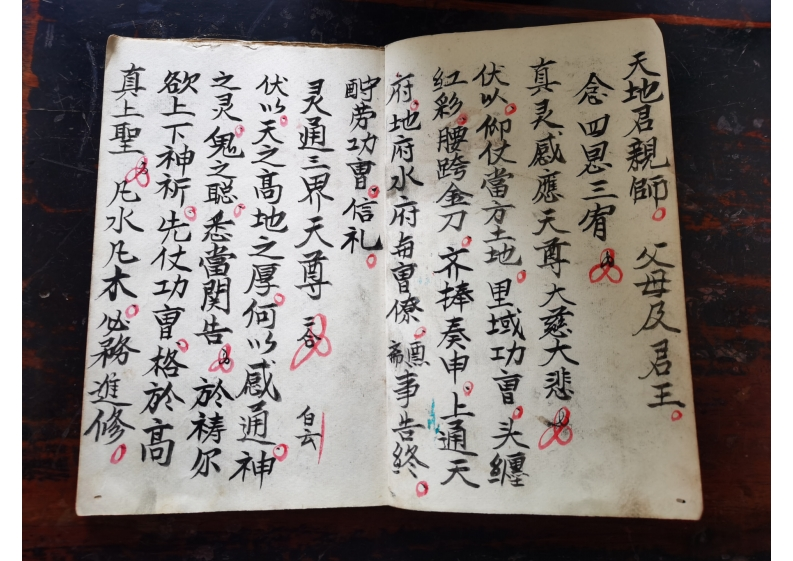 天地君親師 父母及君王
念四恩三宥
真灵感應天尊大慈大悲
伏以仰仗當方土地里域功曹头纏
红彩腰跨金刀齐捧奏申上通天
府地府水府与曹僚斋醮事告终
酧劳功曹信礼
灵通三界天尊 合 白云
伏以天之髙地之厚何以感通神
之灵鬼之聪悉當関告 於祷尔
欲上下神祈先仗功曹格於高
真上聖 凡水凡木必務進修